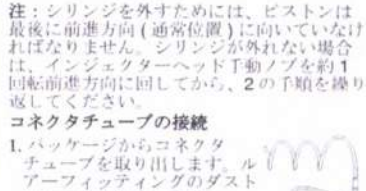 注：シリンジを外すためには、ピストンは
最後に前進方向 ( 通常位置 ) に向いていなけ
ればなりません。シリンジが外れない場合
は、インジェクターヘッド手動ノブを約 1
回転前進方向に回してから、2 の手順を繰り
返してください。
コネクタチューブの接続
1. パッケージからコネクタ
チューブを取り出します。ル
アーフィッティングのダスト